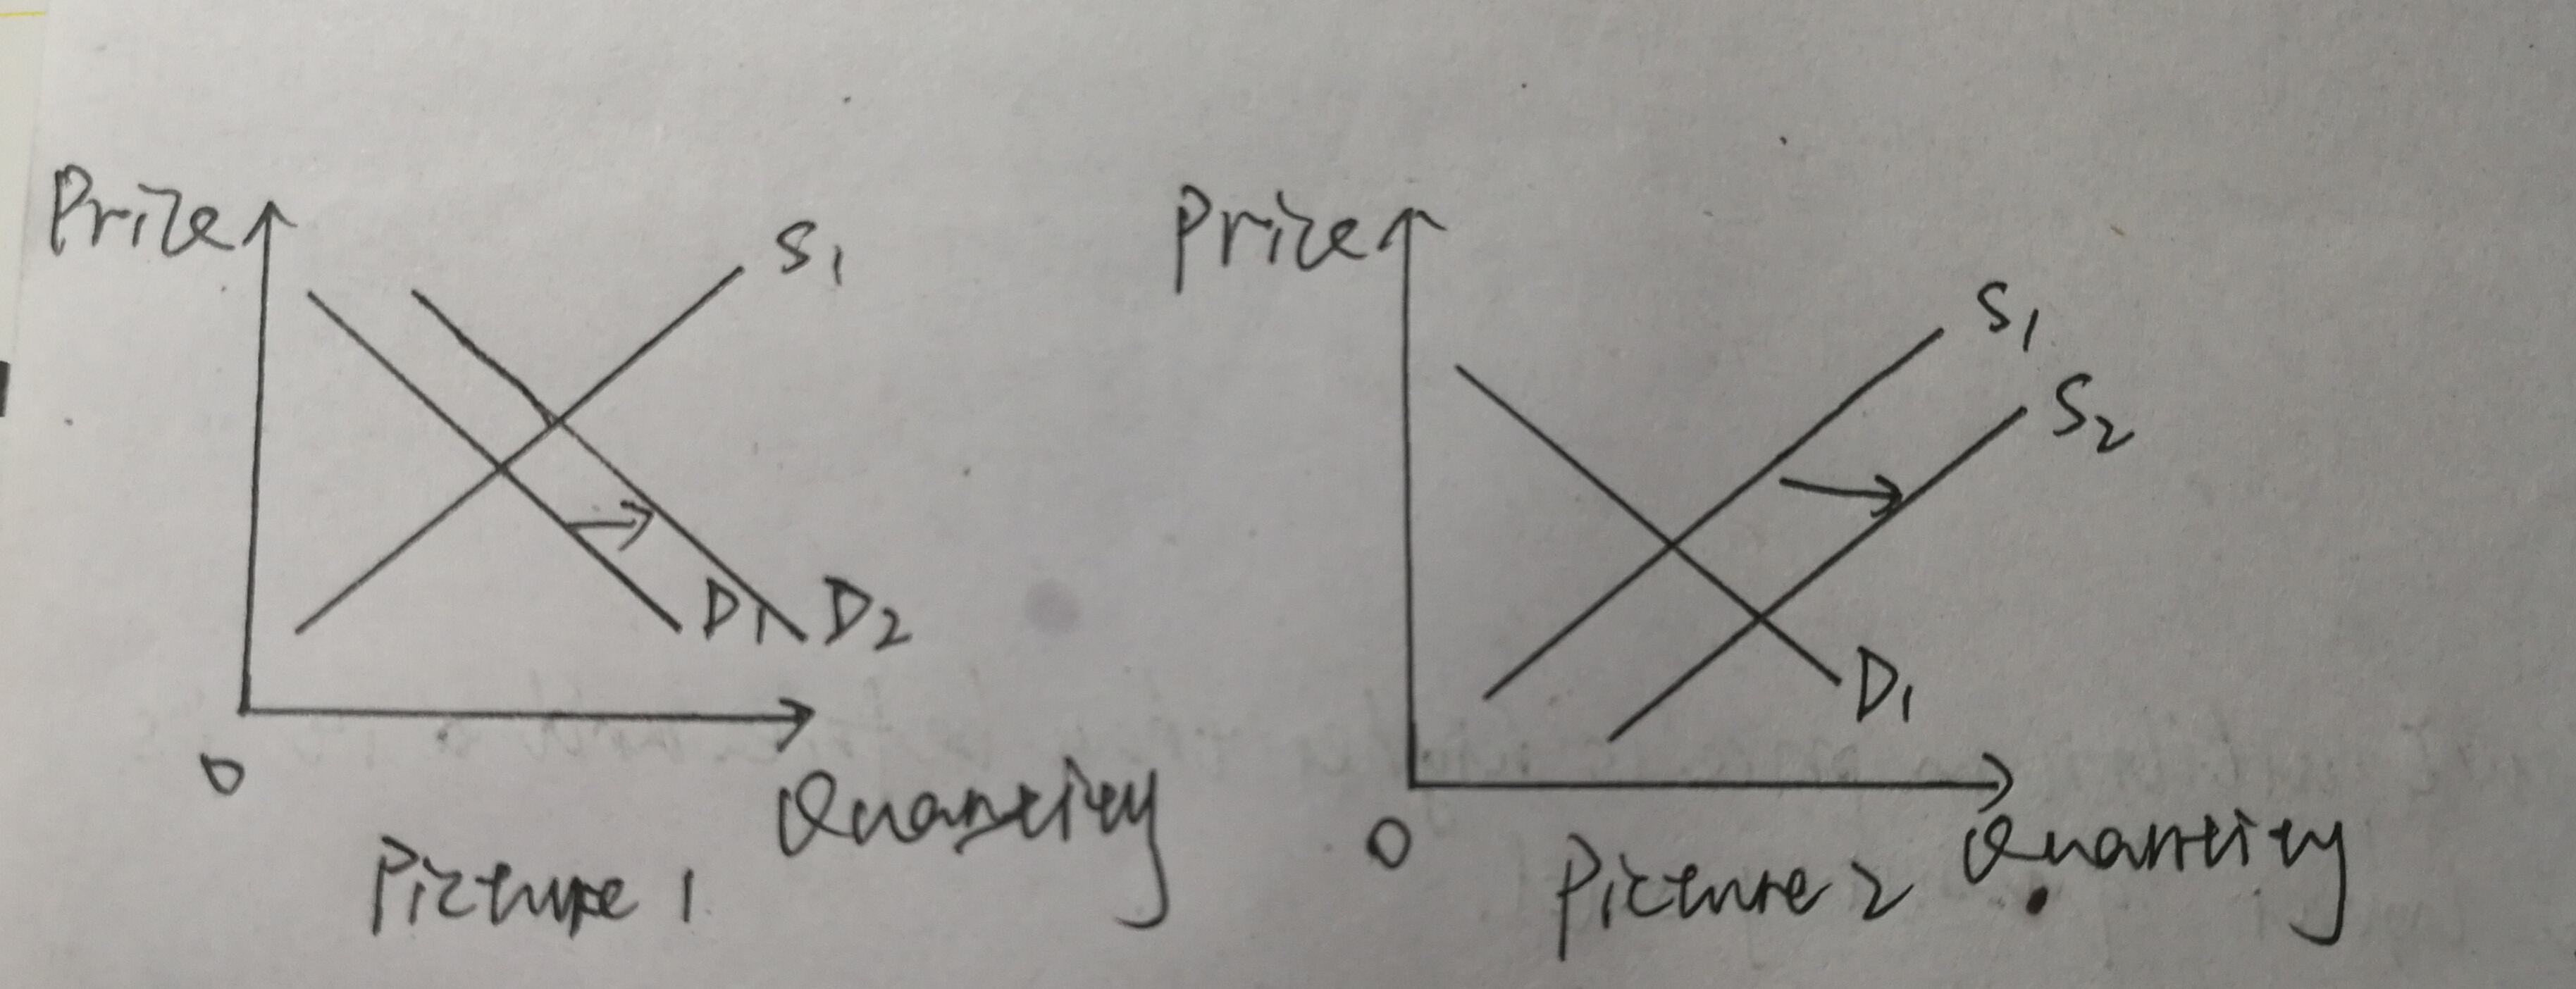 Price
S1
D1 D2
0
Quantity
Picture 1
Price
S1
S2
D1
0
Quantity
Picture 2